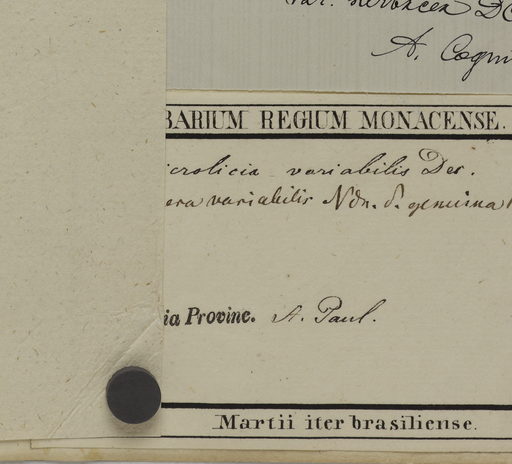 var. nervosa DC
A. Cogni
BARIUM REGIUM MONACENSE.
icrolicia variabilis Dec.
era variabilis Ndn. δ. genuina
ia Provinc. A. Paul.
Martii iter brasiliense.